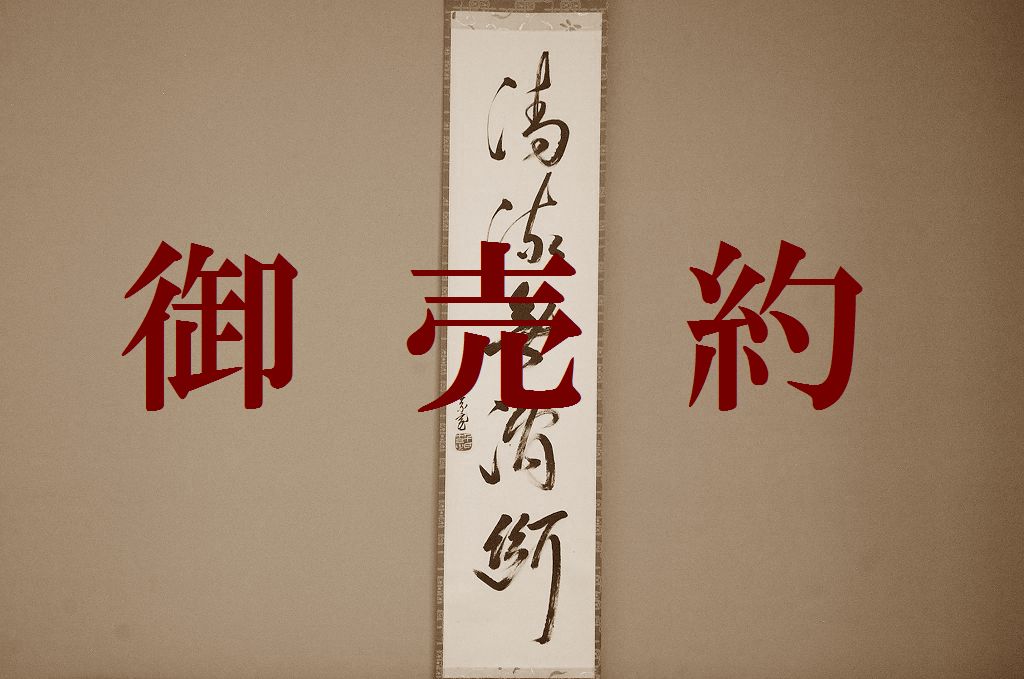 御売約
清流無間断